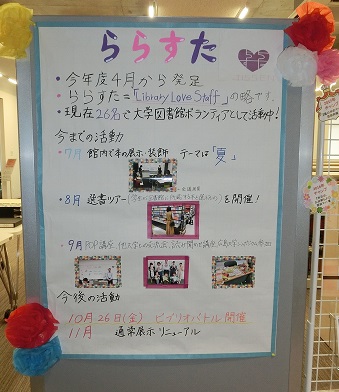 ららすた
・今年度4月から発足
・ららすた=「Library Love Staff」の略です.
・現在26名で大学図書館ボランティアとして活動中!
今までの活動
・7月 館内で本の展示・装飾 テーマは「夏」
・8月 選書ツアー
を開催!
・9月 POP講座
今後の活動
10月26日(金) ビブリオバトル開催
11月 通常展示リニューアル